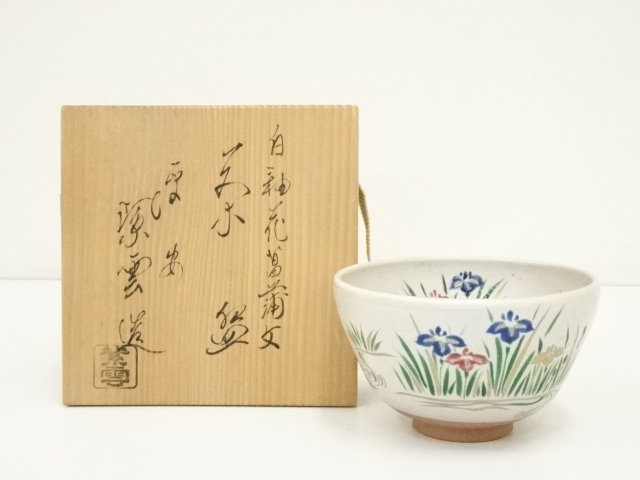 白釉花菖蒲文
茶盌
平安
紫雲造
紫雲